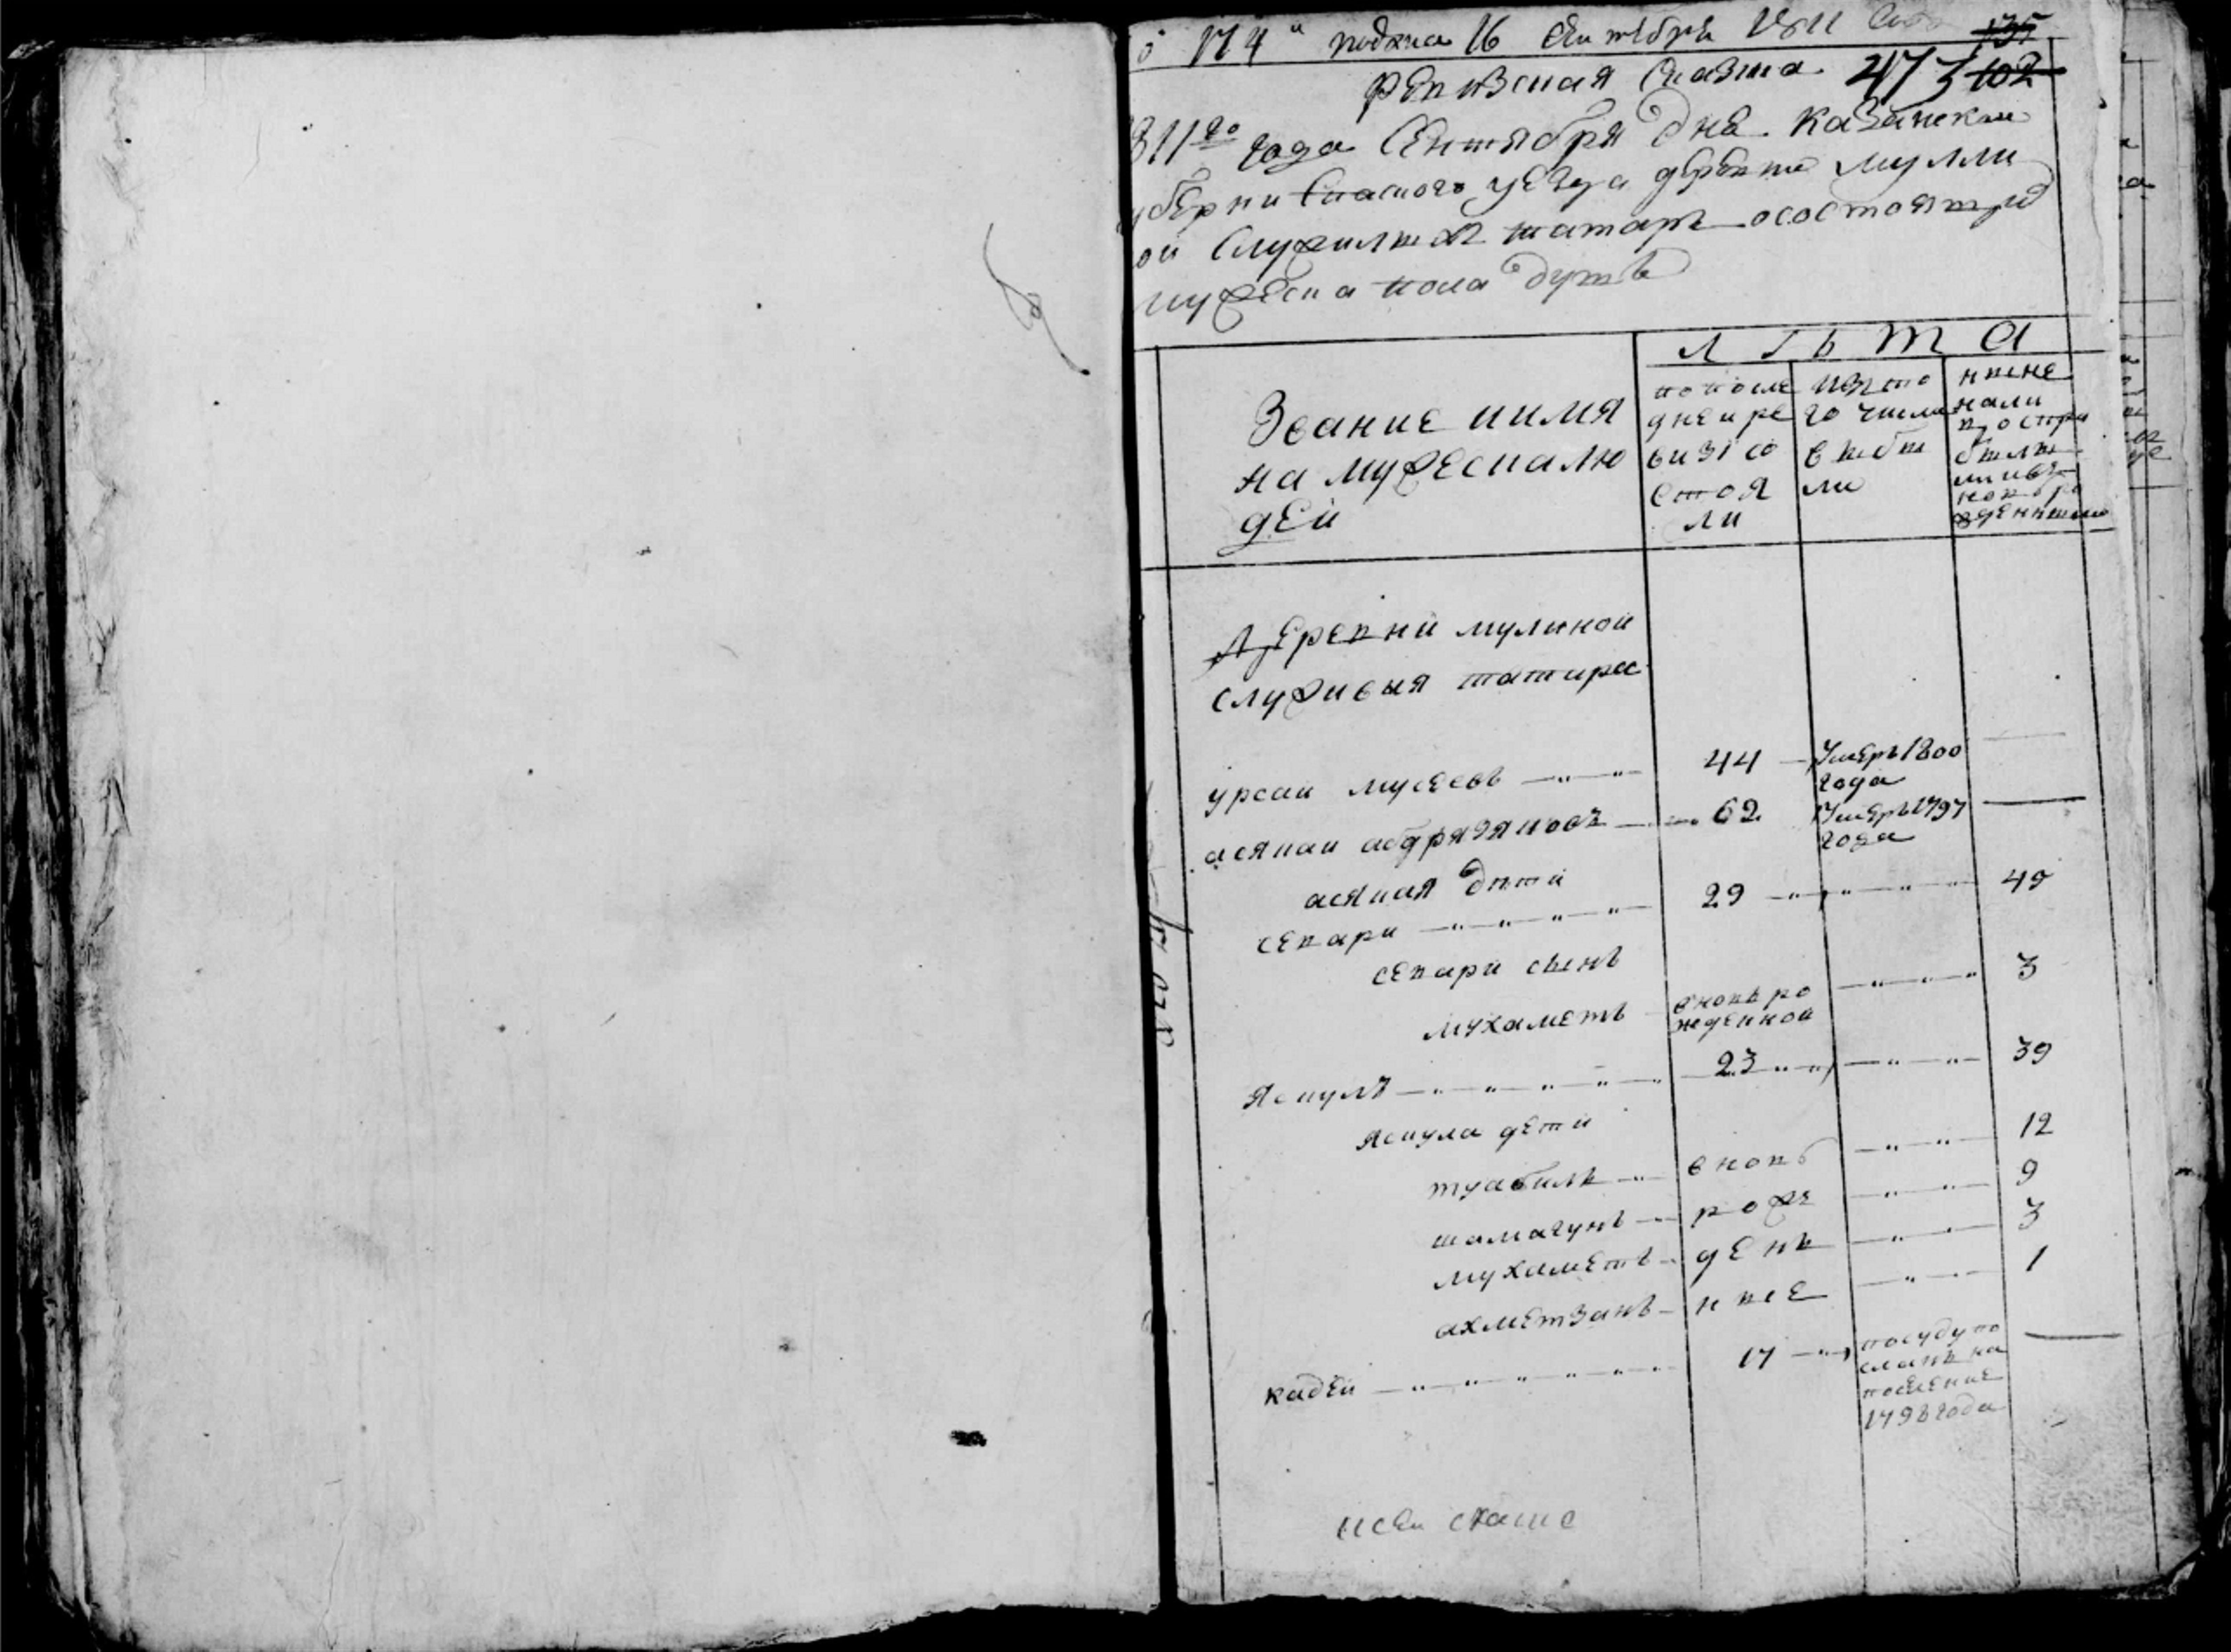 174й подана 16 сентября 1811 135
Ревизская сказка 473 102
811го года сентября дня Казанской
уберни Спаского уезда деревне Мулли
ой служилых татаръ осостоящих
мужеска пола душъ
лѣта
Звание иимя
на мужескалю
дей
попосле
дней ре
визi со
стоя
ли
изто
го числа
выбы
ли
ныне
нали
цо
вно
Деревни мулиной
служивыя татара
урсаи мусеевъ 44 Умеръ 1800
года
асянаи абдрязяновъ 62 Умеръ 1797
года
асяная дети
сепари 29 45
сепари сынъ
мухаметъ вновь ро
жденной 3
Яскулъ 23 39
яскула дети
туабиль вновь 12
шамагунъ рожде 9
мухаметъ день 3
ахметзанъ ные 1
кадеи 17 посуду по
сланъ на
поселение
1798 года